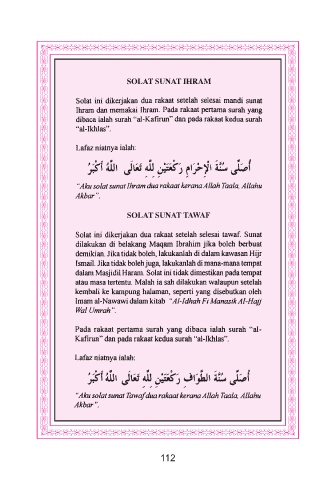 SOLAT SUNAT IHRAM
Solat ini dikerjakan dua rakaat setelah selesai mandi sunat
Ihram dan memakai Ihram. Pada rakaat pertama surah yang
dibaca ialah surah “al-Kafirun” dan pada rakaat kedua surah
“al-Ikhlas”.
Lafaz niatnya ialah:
أُصَلِّى سُنَّةَ الْإِحْرَامِ رَكْعَتَيْنِ لِلَّهِ تَعَالَى اللَّهُ أَكْبَرُ
“Aku solat sunat Ihram dua rakaat kerana Allah Taala, Allahu
Akbar”.
SOLAT SUNAT TAWAF
Solat ini dikerjakan dua rakaat setelah selesai tawaf. Sunat
dilakukan di belakang Maqam Ibrahim jika boleh berbuat
demikian. Jika tidak boleh, lakukanlah di dalam kawasan Hijr
Ismail. Jika tidak boleh juga, lakukanlah di mana-mana tempat
dalam Masjidil Haram. Solat ini tidak dimestikan pada tempat
atau masa tertentu. Malah ia sah dilakukan walaupun setelah
kembali ke kampung halaman, seperti yang disebutkan oleh
Imam al-Nawawi dalam kitab “Al-Idhah Fi Manasik Al-Hajj
Wal Umrah”.
Pada rakaat pertama surah yang dibaca ialah surah “al-
Kafirun” dan pada rakaat kedua surah “al-Ikhlas”.
Lafaz niatnya ialah:
أُصَلِّى سُنَّةَ الطَّوَافِ رَكْعَتَيْنِ لِلَّهِ تَعَالَى اللَّهُ أَكْبَرُ
“Aku solat sunat Tawaf dua rakaat kerana Allah Taala, Allahu
Akbar”.
112